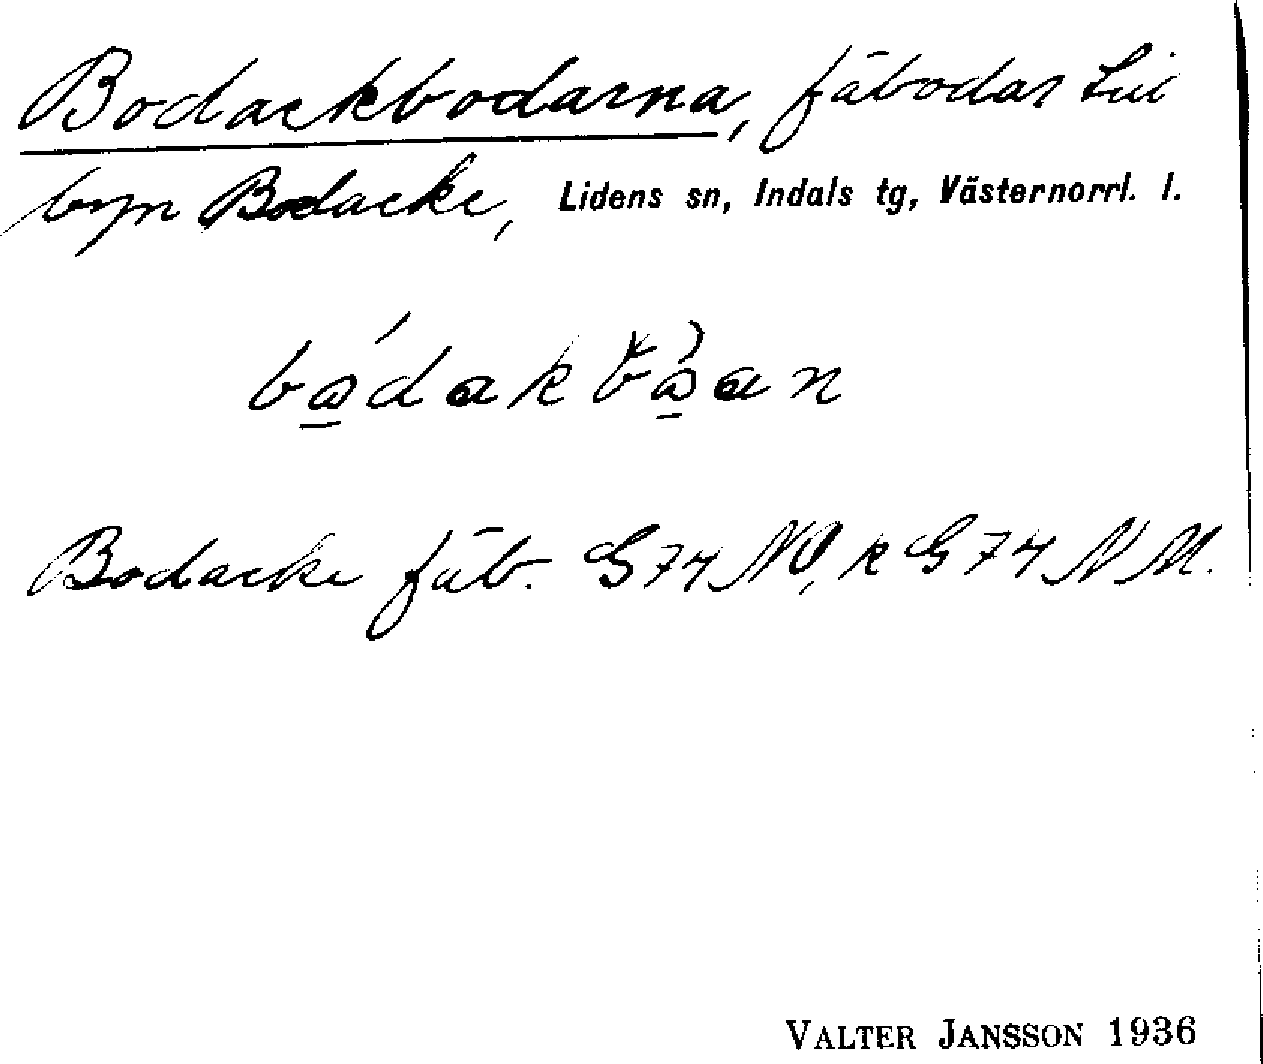 Bodackbodarna, fäbodar till
byn Bodacke, Lidens sn, Indals tg, Västernorrl. l.
Bodacke fäb. G 74 NO, k G 74 NM.
VALTER JANSSON 1936